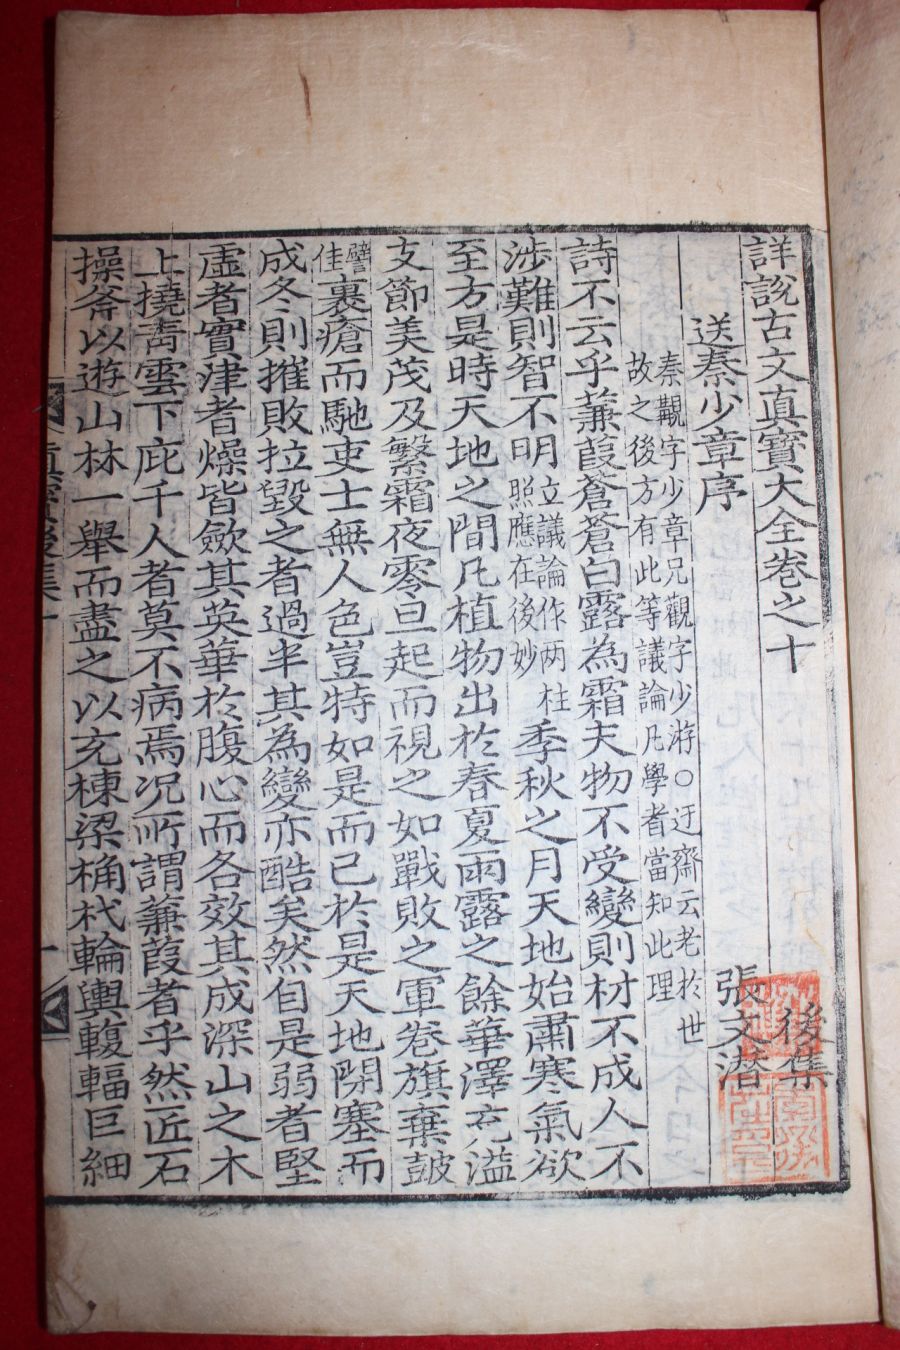 詳說古文眞寶大全卷之十
後集
送秦少章序
張文潛
秦觀字少章兄觀字少游○迂齋云老於世
故之後方有此等議論凡學者當知此理
詩不云乎蒹葭蒼蒼白露為霜夫物不受變則材不成人不
涉難則智不明立議論作两柱照應在後妙季秋之月天地始肅寒氣欲
至方是時天地之間凡植物出於春夏雨露之餘華澤充溢
支節美茂及繁霜夜零旦起而視之如戰敗之軍卷旗棄鼓
譬佳裹瘡而馳吏士無人色豈特如是而已於是天地閉塞而
成冬則摧敗拉毁之者過半其為變亦酷矣然自是弱者堅
虛者實津者燥皆斂其英華於腹心而各效其成深山之木
上撓靑雲下庇千人者莫不病焉况所謂蒹葭者乎然匠石
操斧以遊山林一舉而盡之以充棟梁桷杙輪輿輹輻巨細